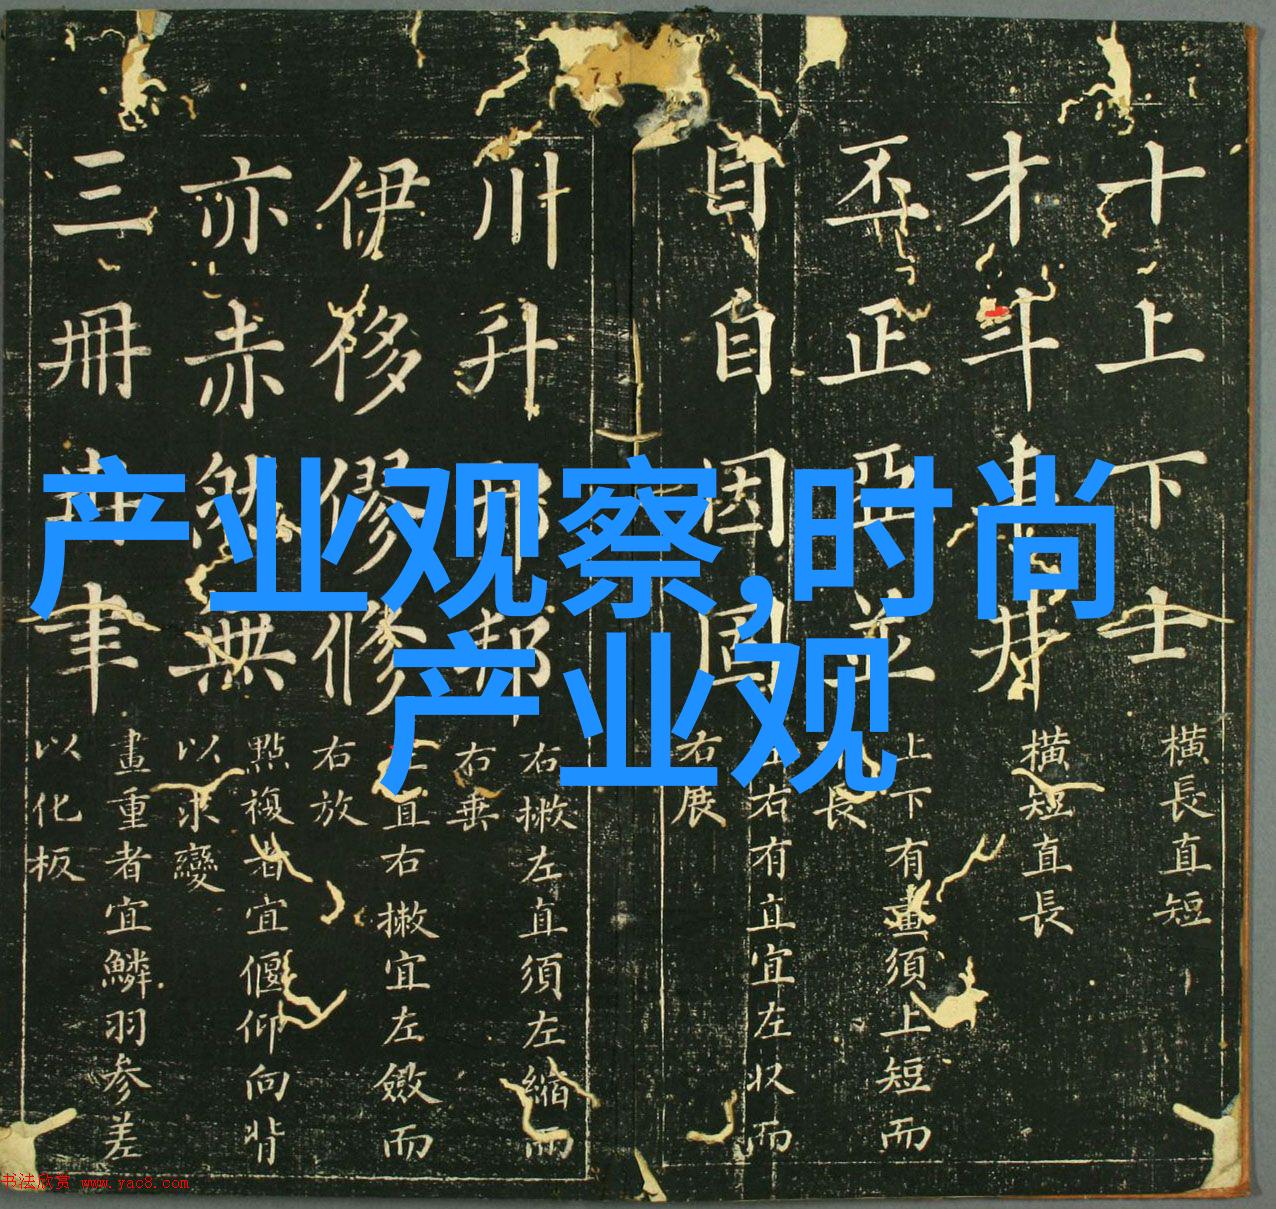 产业观察,时尚
产业观
十上下士
橫長直短
才斗井
橫短直長
丕正亞並
上下有畫須上短而
下長
目自因固
左右有直宜左收而
右展
川升邦
右撇左直須左縮而
右垂
伊侈僇修
左直右撇宜左斂而
右放
亦赤然無
點複者宜偃仰向背
以求變
三冊聿
畫重者宜鱗羽參差
以化板
书法欣赏 www.yac8.com